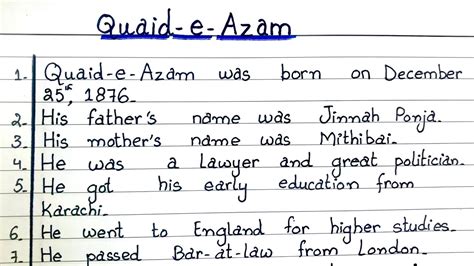 Quaid-e-Azam
1- Quaid-e-Azam was born on December
25th, 1876-
2- His father's name was Jinnah Ponja-
3- His mother's name was Mithibai-
4- He was a lawyer and great politician-
5- He got his early education from
Karachi-
6- He went to England for higher studies-
7- He passed Bar-at-law from London-